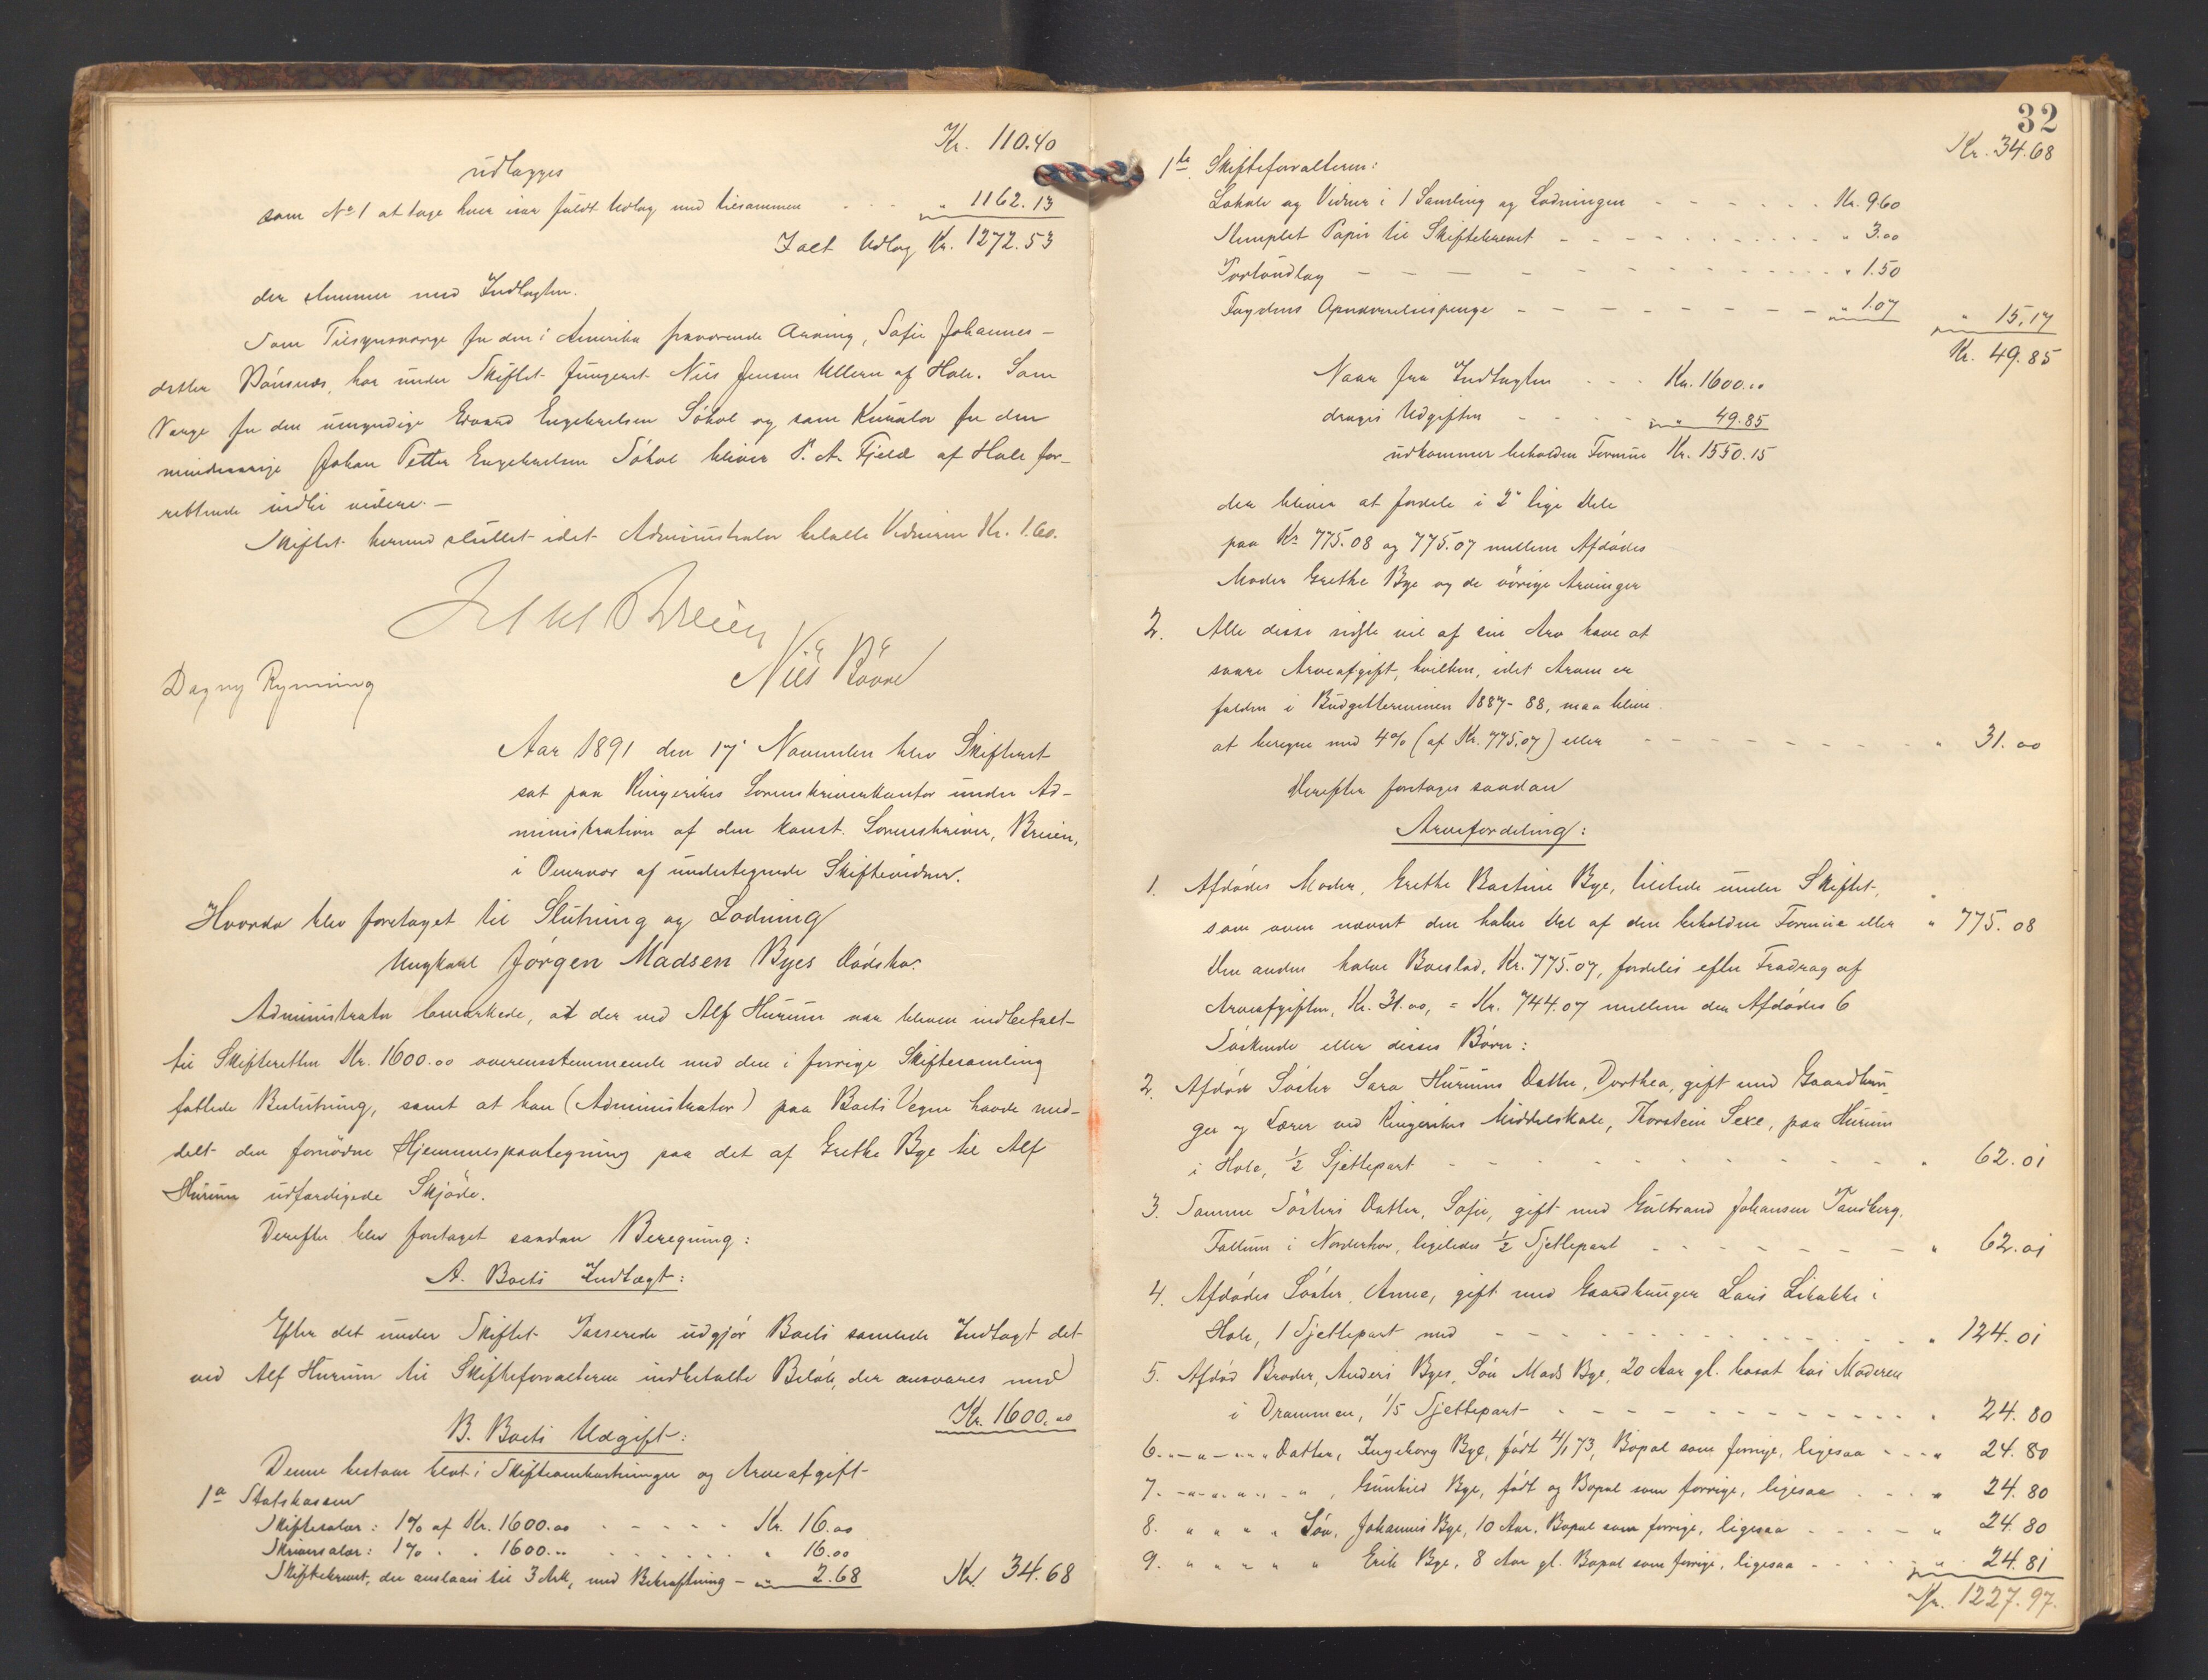 Kr. 110.40
udlægges
som No 1 at tage hver især fuldt Udlæg med tilsammen - - - " 1162.13
Ialt Udlæg Kr. 1272.53
der stemmer med Indtægten.
Som Tilsynsværge for den i Amerika fraværende Arving, Sofie Johannes-
datter Bönsnæs, har under Skiftet fungeret Nils Jensen Ullern af Hole. Som
Værge for den umyndige Edvard Engebretsen Søhol og som Kurator for den
mindreaarige Johan Petter Engebretsen Søhol bliver P. A. Fjeld af Hole for-
rettende indtil videre. -
Skiftet hermed sluttet idet Administrator betalte Vidnerne Kr. 1.60.
Breien
Nils Bövre
Dagny Rynning
Aar 1891 den 17. November blev Skifteret
sat paa Ringerikes Sorenskriverkontor under Ad-
ministration af den konst. Sorenskriver, Breien,
i Overvær af undertegnede Skiftevidner.
Hvorda blev foretaget til Slutning og Lodning
Ungkarl Jörgen Madsen Byes Dödsbo.
Administrator bemærkede, at der ved Alf Hurum var bleven indbetalt
til Skifteretten Kr. 1600.00 overensstemmende med den i forrige Skiftesamling
fattede Beslutning, samt at han (Administrator) paa Boets Vegne havde med-
delt den fornödne Hjemmelspaategning paa det af Grethe Bye til Alf
Hurum udfærdigede Skjöde.
Derefter blev foretaget saadan Beregning:
A. Boets Indtægt:
Efter det under Skiftet Passerede udgjör Boets samlede Indtægt det
ved Alf Hurum til Skifteforvalteren indbetalte Belöb, der ansvares med
Kr. 1600.00
B. Boets Udgift:
Denne bestaar blot i Skifteomkostninger og Arveafgift
1a Statskassen
Skiftesalær: 1% af Kr. 1600.00 - - - - - Kr. 16.00
Skriversalær: 1% " " 1600.00 . . . . . " 16.00
Skiftebrevet, der anslaaes til 3 Ark, med Bekræftning - " 2.68 Kr. 34.68
32
Kr. 34.68
1b. Skifteforvalteren:
Lokale og Vidner i 1 Samling og Lodningen - - - - - - Kr. 9.60
Stemplet Papir til Skiftebrevet - - - - - - - - - - " 3.00
Portoudlæg - - - - - - - - - - - " 1.50
Fogdens Opkrævelsespenge - - - - - - - - - " 1.07 " 15.17
Kr. 49.85
Naar fra Indtægten - - - Kr. 1600.00
drages Udgiften - - - - - " 49.85
udkommer beholden Formue Kr. 1550.15
der bliver at fordele i 2de lige Dele
paa Kr. 775.08 og 775.07 mellem Afdödes
Moder Grethe Bye og de övrige Arvinger
2. Alle disse sidste vil af sin Arv have at
svare Arveafgift, hvilken, idet Arven er
falden i Budgetterminen 1887-88, maa blive
at beregne med 4% (af Kr. 775.07) eller - - - - - - - - - " 31.00
Derefter foretages saadan
Arvefordeling:
1. Afdödes Moder, Grethe Bastine Bye, tildeles under Skiftet,
som oven nævnt den halve Del af den beholdne Formue eller " 775.08
Den anden halve Boeslod, Kr. 775.07, fordeles efter Fradrag af
Arveafgiften, Kr. 31.00, = Kr. 744.07 mellem den Afdödes 6
Söskende eller disses Börn:
2. Afdöd Söster Sara Hurums Datter, Dorthea, gift med Gaardbru-
ger og Lærer ved Ringerikes Middelskole, Thorstein Sexe, paa Hurum
i Hole, ½ Sjettepart - - - - - - - - - - - " 62.01
3. Samme Sösters Datter, Sofie, gift med Gulbrand Johansen Tandberg,
Tallum i Norderhov, ligeledes ½ Sjettepart - - - - - - - " 62.01
4. Afdödes Söster, Anne, gift med Gaardbruger Lars Libakke i
Hole, 1 Sjettepart med - - - - - - - - - - - " 124.01
5. Afdöd Broder, Anders Byes, Sön Mads Bye, 20 Aar gl. bosat hos Moderen
i Drammen, 1/5 Sjettepart - - - - - - - - - - " 24.80
6. - " - " - " Datter, Ingeborg Bye, födt 4/1 73, Bopæl som forrige, ligesaa - - - " 24.80
7. - " - " - " - " , Gunhild Bye, födt og Bopæl som forrige, ligesaa - - - " 24.80
8. " " " " Sön, Johannes Bye, 10 Aar. Bopæl som forrige, ligesaa - - - - " 24.80
9. " " " " " Erik Bye, 8 Aar gl. Bopæl som forrige, ligesaa - - - - " 24.81
Kr. 1227.97.